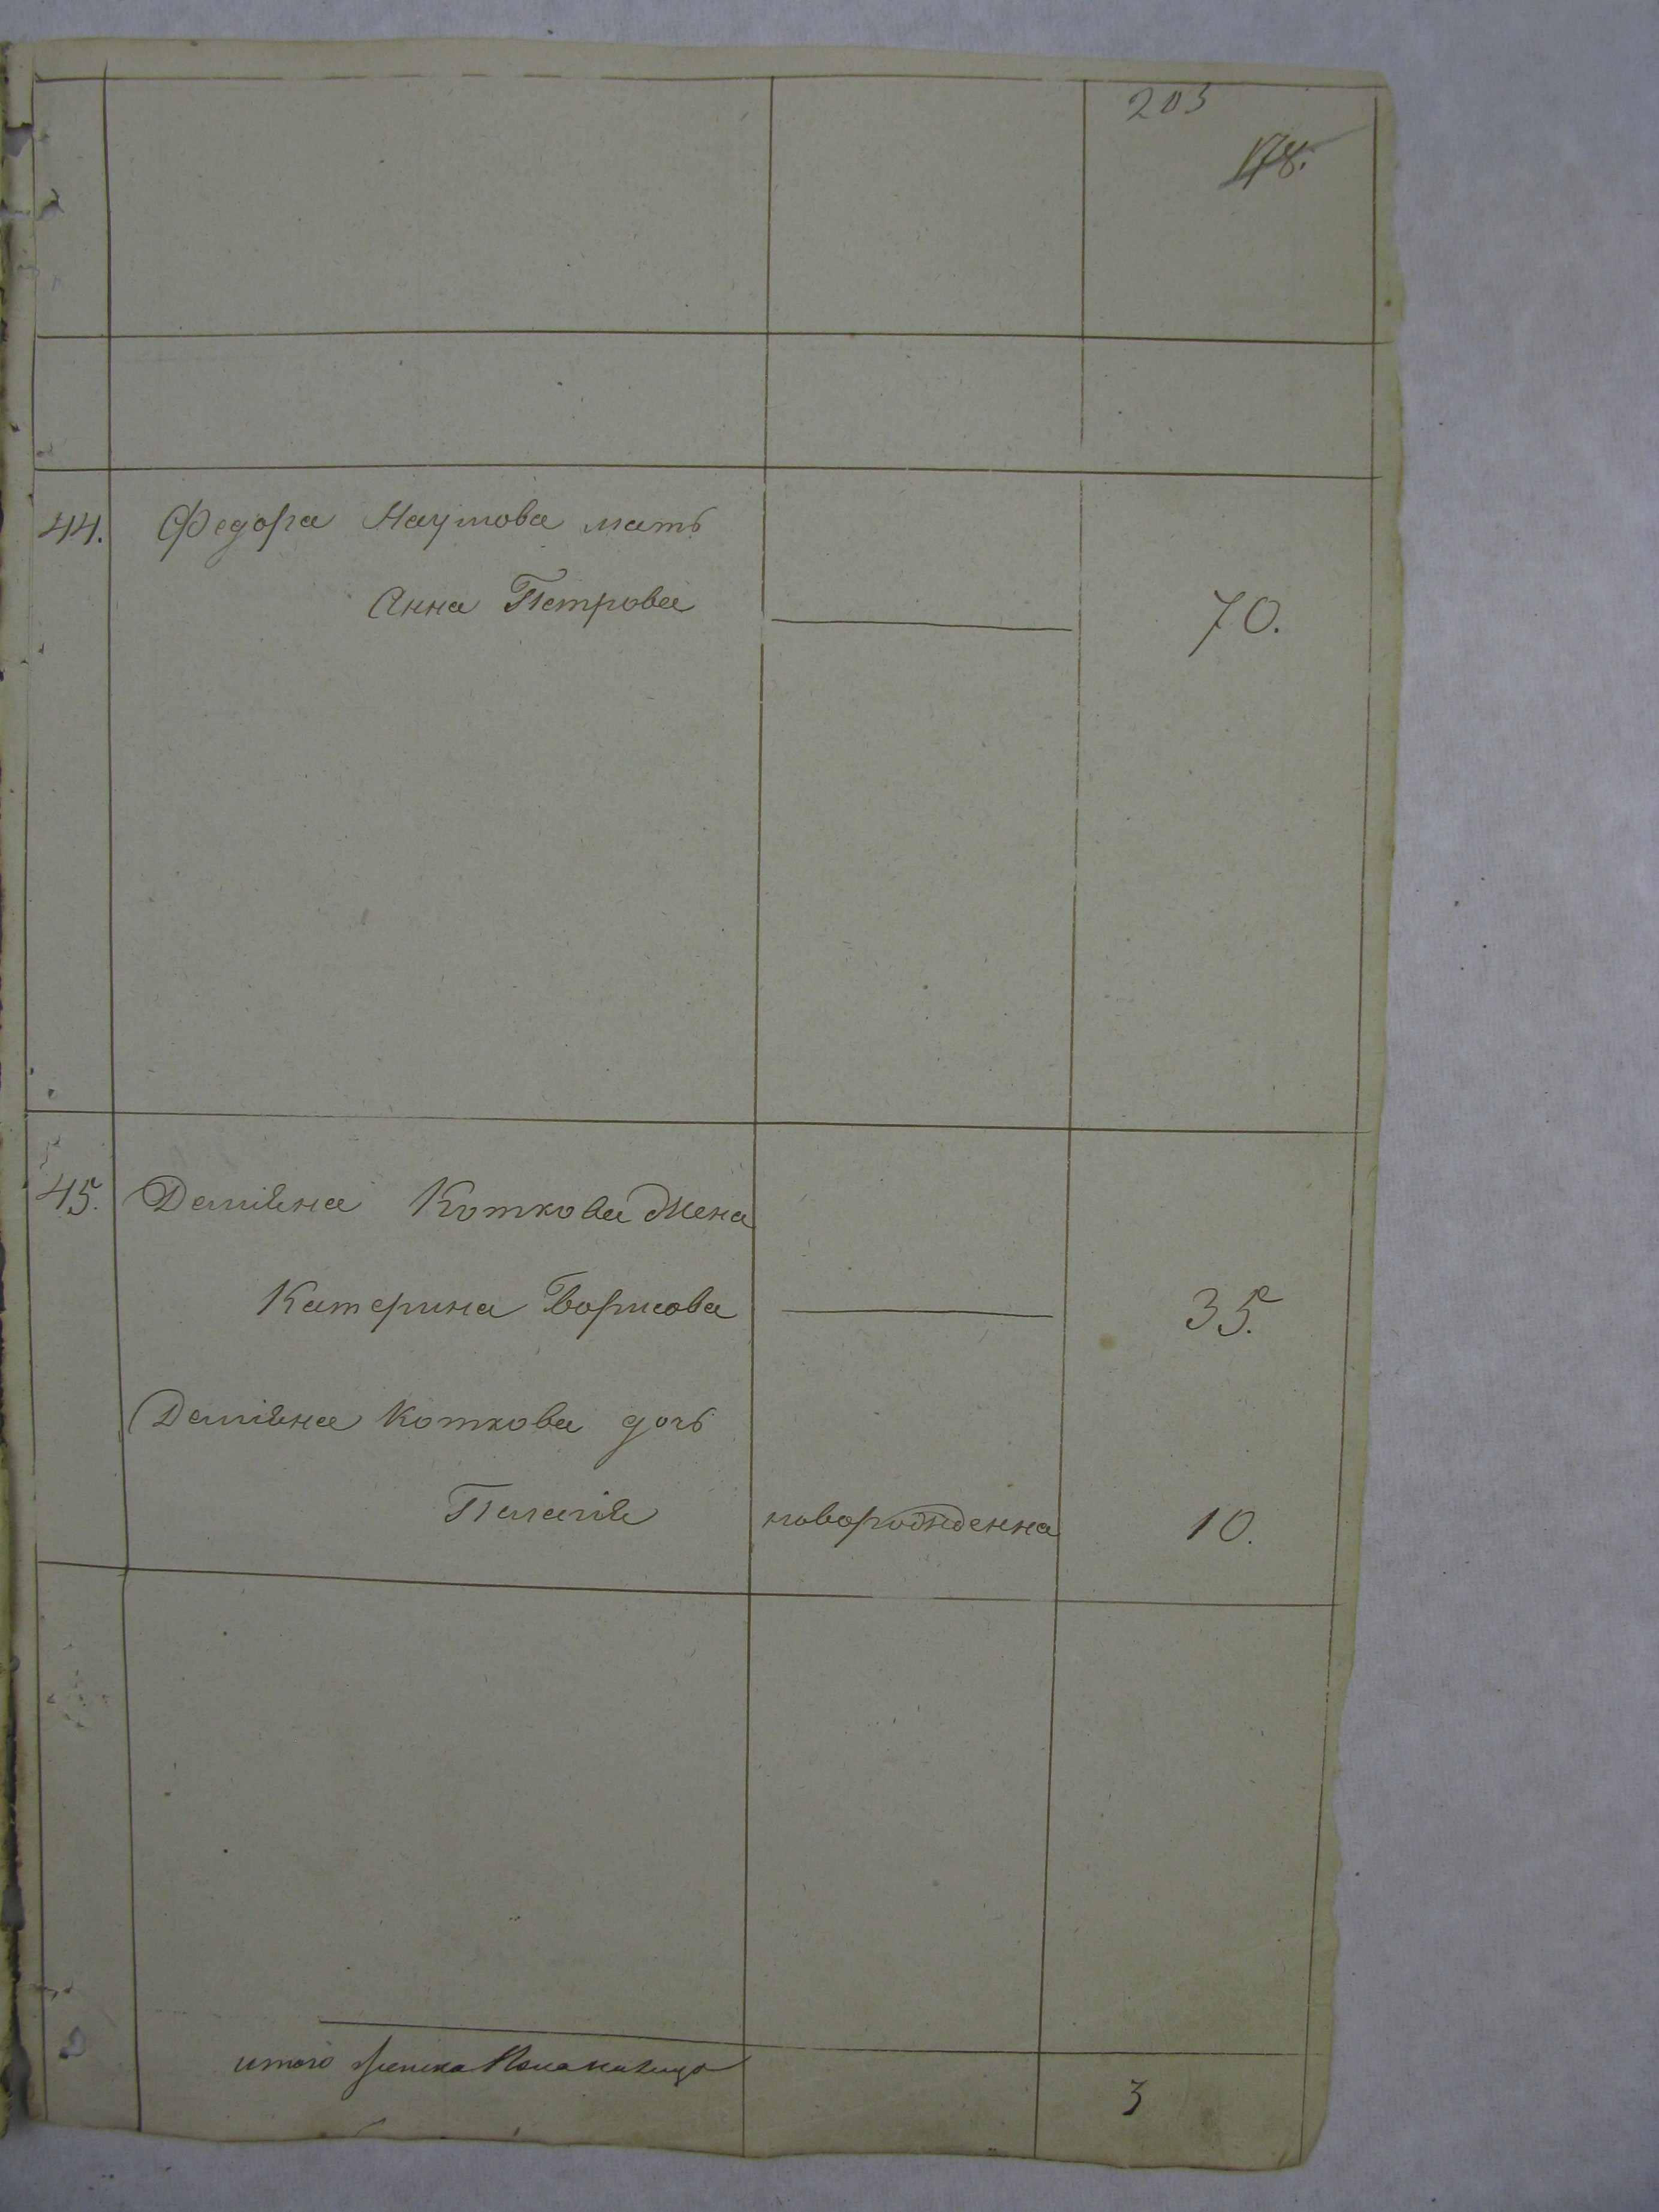 203
178.
44. Федора Наумова мать
Анна Петрова 70.
45. Демiяна Коткова Жена
Катерина Борисова 35.
Демiяна Коткова дочь
Пелагiя новорожденна 10.
итого женска 3